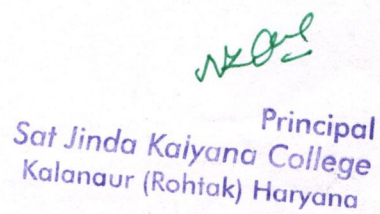 Principal
Sat Jinda Kaiyana College
Kalanaur (Rohtak) Haryana